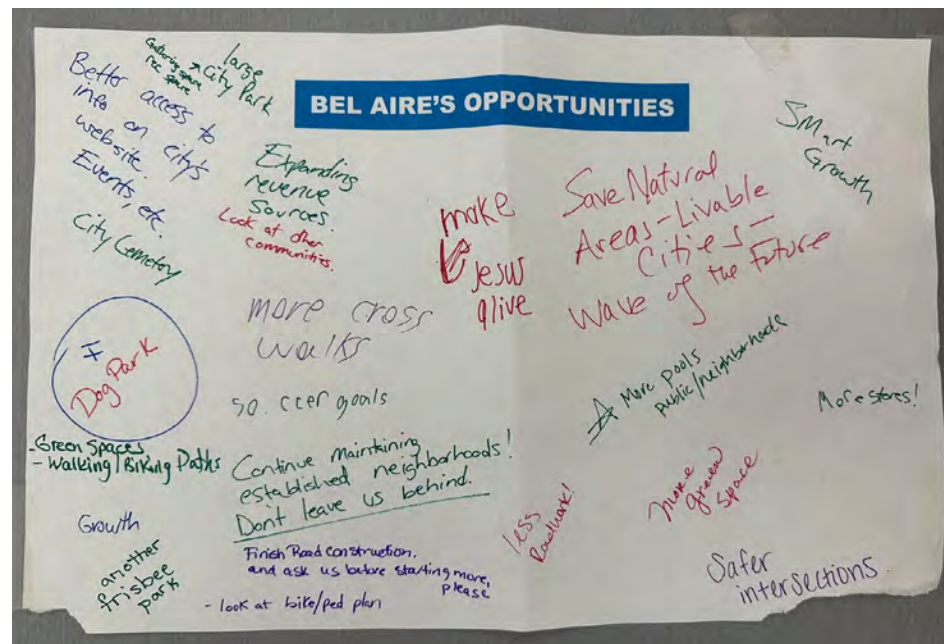 BEL AIRE'S OPPORTUNITIES
Gathering space
rec space
large
City Park
Better access to
info on city's
website.
Events, etc.
City Cemetery
Expanding
revenue
Sources.
Look at other
communities.
make
Jesus
alive
Save Natural
Areas-Livable
Cities-
Wave of the Future
Smart
Growth
more cross
walks
Dog Park
so. ccer goals
More pools
public/neighborhoods
More stores!
-Green Spaces
-Walking/Biking Paths
Continue Maintaining
established neighborhoods!
Dont leave us behind.
Growth
another
frisbee
park
Finish Road Construction.
and ask us before starting more,
please
- look at bike/ped plan
less
Roadwork!
more
green
space
Safer
intersections.